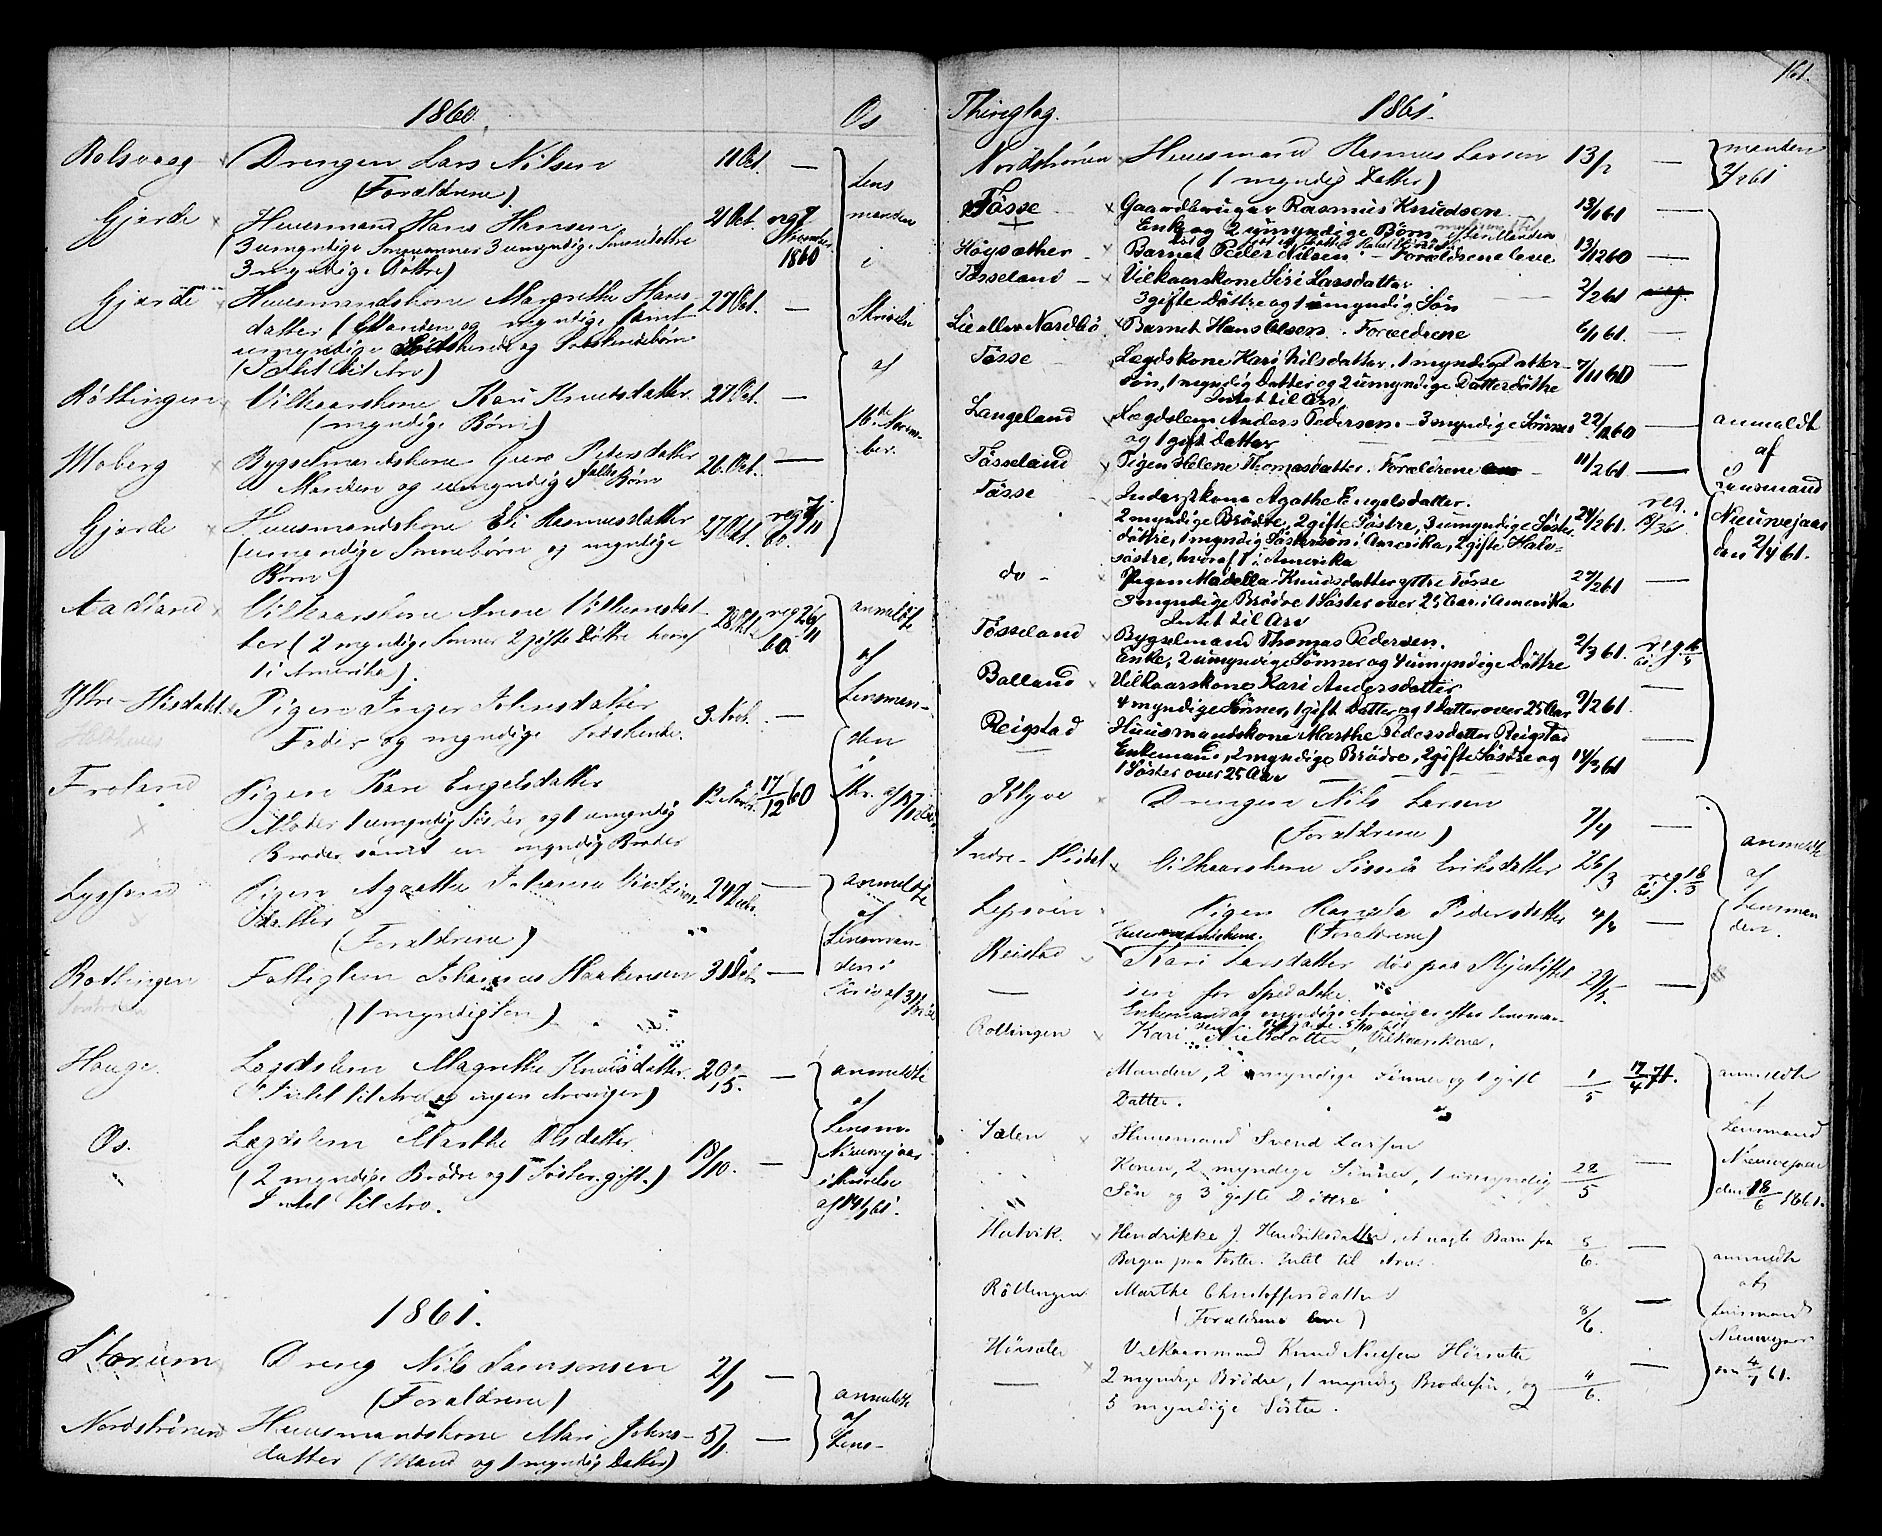 1860.
Os
Rolsvaag Drengen Lars Nilsen 11 Oct. —
(Forældrene)
Gjerde Huusmand Hans Hansen 21 Oct. reg 7
3 umyndige Sønner 3 umyndige
3 myndige Døttre) 1860
Gjerde Huusmandskone Margrethe Hans- 27 Oct. —
datter (Manden og myndige samt
umyndige Sødskende og Sødskendebørn
(Intet til Arv)
Røttingen Vilkaarskone Kari Knudsdatter 27 Oct. —
(myndige Børn)
Moberg Bygselmandskone Guro Pedersdatter 26 Oct. —
Manden og umyndige Børn
Gjerde Huusmandskone Eli Rasmusdatter 27 Oct. reg 7/11 60.
(umyndige Sønnebørn og myndige
Børn)
Lens
manden
i
Skrivelse
af
16de Novem-
ber.
Aadland Vilkaarskone Anne Villumsdat- 28 Oct. reg 26/11 60
ter (2 myndige Sønner 2 gifte Døttre hvoraf
1 i Amerika).
Yttre-Hisdahl Pigen Inger Johnsdatter 3 Nvb. —
Fader og myndige Sødskende.
Frøland Pigen Kari Engelsdatter 12 Nov. 17/12 60
Moder 1 umyndig Søster og 1 umyndig
Broder samt en myndig Broder
anmeldte
af
Lensman-
den
Lyssand Pigen Agathe Johanne 24 Decbr. —
datter
(Forældrene)
Røttingen Fattiglem Johannes Haakensen 31 Decbr. —
(1 myndig Søn)
anmeldte
af
Lensman-
den i
Hauge. Lægdslem Magrethe Knudsdatter. 20/5. —
(Intet til Arv og ingen Arvinger)
Os. Lægdslem Marthe Olsdatter 18/10. —
(2 myndige Brødre og 1 Søster gift.)
Intet til Arv.
anmeldte
af
Lensm.
Nieuwejaar
i Skrivelse
af 19/1 61.
1861.
Storum Dreng Nils Samsonsen 2/1 —
(Forældrene)
Nordstrønen Huusmandskone Mari Johns- 5/1 —
datter (Mand og 1 myndig Datter)
anmeldte
af
Lens-
161.
Thinglag.
1861.
Nordstrønen Huusmand Rasmus Larsen 13/2 —
(1 myndig Datter)
manden
3/2 61
Tøsse Gaardbruger Rasmus Knudsen 13/1 61 —
Enke og 2 umyndige Børn
Høysæther Barnet Peder Nilsen. — Forældrene leve 13/12 60 —
Tøsseland — Vilkaarskone Siri Larsdatter 2/2 61
3 gifte Døttre og 1 umyndig Søn
Lie eller Nordbø Barnet Hans Olsen. Forældrene 6/1 61. —
Tøsse Lægdskone Kari Nilsdatter, 1 myndig Datter- 7/11 60 —
søn, 1 myndig Datter og 2 umyndige Datterdøttre
Intet til Arv
Langeland Lægdslem Anders Pedersen. — 3 myndige Sønner 22/12 60 —
og 1 gift Datter
Tøsseland Pigen Helene Thomasdatter. Forældrene 11/2 61. —
Tøsse Inderstkone Agathe Engelsdatter. reg.
2 myndige Brødre, 2 gifte Søstre, 3 umyndige Søster- 24/2 61.
døttre, 1 myndig Søstersøn i Amerika, 2 gifte Halv-
søstre, hvoraf 1 i Amerika
do — Pigen Madella Knudsdatter yttre Tøsse 27/2 61 —
3 myndige Brødre 1 Søster over 25 Aar i Amerika
Intet til Arv
Tøsseland Bygselmand Thomas Pedersen. 2/3 61.
Enke, 2 umyndige Sønner og 4 umyndige Døttre
Bolland Vilkaarskone Kari Andersdatter —
4 myndige Sønner, 1 gift Datter og 1 Datter over 25 Aar 9/2 61.
Reigstad Huusmandskone Marthe Pedersdatter Reigstad —
Enkemand, 2 myndige Brødre, 2 gifte Søstre og 14/3 61
1 Søster over 25 Aar
anmeldt
af
Lensmand
Nieuwejaar
den 2/4 61.
Klyve Drengen Nils Larsen 7/4 —
(Forældrene)
Indre-Hisdal Vilkaarskone Sissela Eriksdatter 25/3
Lepsøen Pigen Pedersdatter 4/4 —
Huusmandskone. (Forældrene)
Reistad Kari Larsdatter død paa Pleiestiftel- 29/3. —
sen for Spedalske.
Enkemand og myndige Arvinger efter Lensman-
anmeldte
af
Lensman
den.
Røttingen Kari Nielsdatter, Vilkaarskone.
Manden, 2 myndige Sønner og 1 gift 1/5 17/4 71.
Datter.
Sælen Huusmand Svend Larsen
Konen, 2 myndige Sønner, 1 umyndig 22/5 —
Søn og 3 gifte Døttre
anmeldte
af
Lensmand
Nieuwejaar
den 18/6 1861.
Hatvik. Hendrikke J. Hendriksdatter, et uægte Barn fra 5/6. —
Bergen paa Foster. Intet til Arv.
Røttingen Marthe Christoffersdatter
(Forældrene leve) 8/6. —
Hørsæter Vilkaarsmand Knud Nielsen Hørsæter
— 2 myndige Brødre, 1 myndig Brodersøn, og 4/6. —
5 myndige Søstre.
anmeldte
af
Lensmand
Nieuwejaar
den 4/7 61.